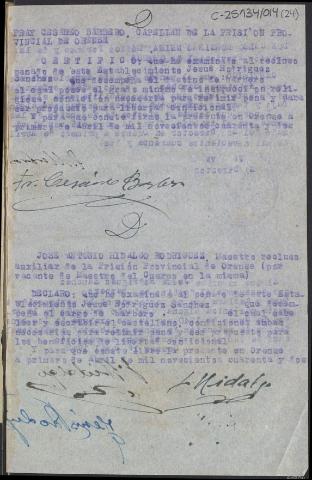 C-25134/014 (24)
FRAY CESAREO BARBERO, CAPELLAN DE LA PRISION PRO-
VINCIAL DE ORENSE
C E R T I F I C O; que he examinado al recluso
penado de este Establecimiento Jesus Rodriguez
Sanchez que desempeña el destino de barbero
el cual posee el grado minimo de instruccion reli
giosa, condicion necesaria para redimir pena y para
ser propuesto para libertad condicional
Y para que conste firmo la presente en Orense a
primero de Abril de mil novecientos cuarenta y dos
Fr. Cesáreo Barbero
JOSE ANTONIO HIDALGO RODRIGUEZ, Maestro recluso
auxiliar de la Prisión Provincial de Orense (por
vacante de Maestro del Cuerpo en la misma)
DECLARO; que he examinado al penado de este Esta
blecimiento Jesus Rodriguez Sanchez que desem-
peña el cargo de barbero el cual sabe
leer y escribir el castellano, condiciones ambas
necesarias para redimir pena y ser propuesto para
los beneficios de libertad condicional
Y para que conste libro la presente en Orense
a primero de Abril de mil novecientos cuarenta y dos
Hidalgo